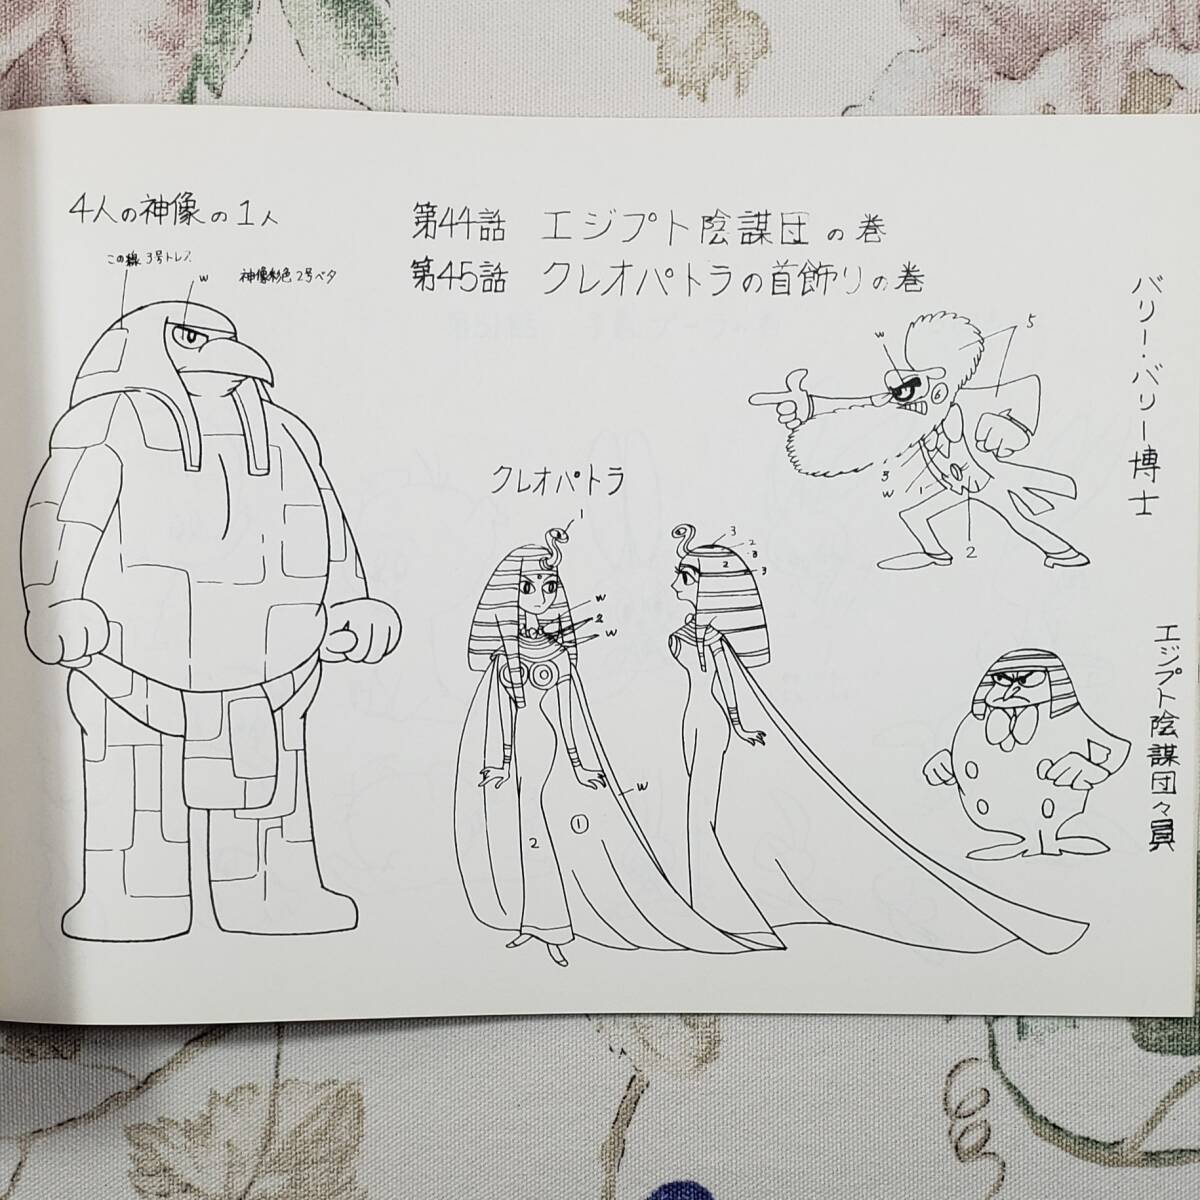 4人の神像の1人
この線3号トレス
W
神像彩色2号ベタ
第44話 エジプト陰謀団の巻
第45話 クレオパトラの首飾りの巻
バリー・バリー博士
W
5
6
3
W
1
2
クレオパトラ
1
W
2
W
W
2
1
3
2
3
2
3
エジプト陰謀団々員